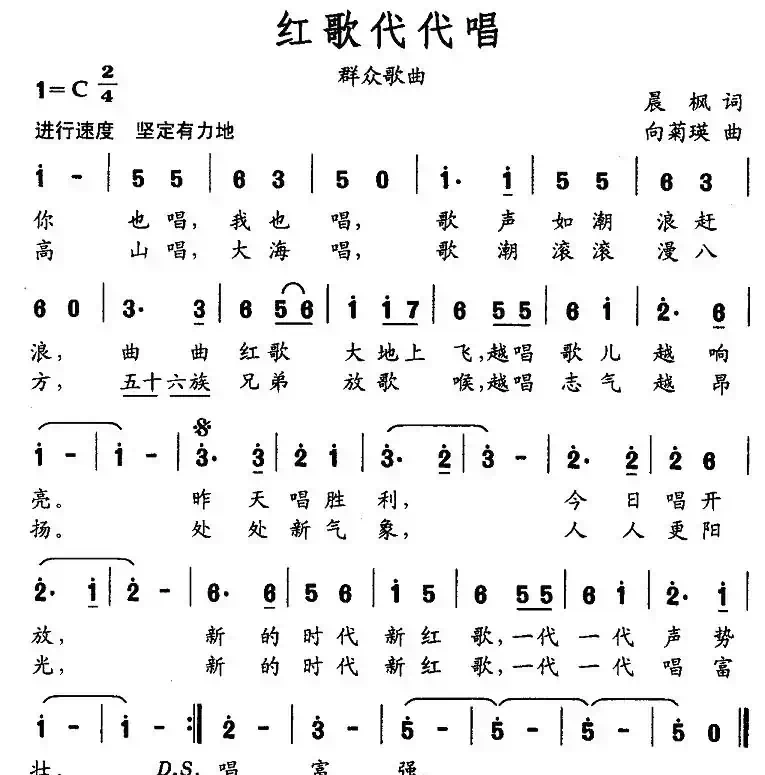 红歌代代唱
群众歌曲
1=C 2/4
晨 枫 词
进行速度 坚定有力地
向菊瑛 曲
i - | 5 5 | 6 3 | 5 0 | i· i | 5 5 | 6 3 |
你 也唱, 我也 唱, 歌 声 如潮 浪赶
高 山唱, 大海 唱, 歌 潮 滚滚 漫八
6 0 | 3· 3 | 6 5 6 | i i 7 | 6 5 5 | 6 i | 2· 6 |
浪, 曲 曲 红歌 大地上 飞,越唱 歌儿 越 响
方, 五十六族 兄弟 放歌 喉,越唱 志气 越 昂
i - | i - | 3· 3 | 2 i | 3· 2 | 3 - | 2· 2 | 2 6 |
亮。 昨 天唱胜 利, 今 日唱开
扬。 处 处新气 象, 人 人更阳
2· i | 2 - | 6· 6 | 5 6 | i 5 | 6 5 5 | 6 i | 2· i |
放, 新 的时代 新红 歌,一代 一代 声势
光, 新 的时代 新红 歌,一代 一代 唱富
i - | i - :| 2 - | 3 - | 5 - | 5 - | 5 - | 5 0 ||
壮. D.S. 唱 富 强.